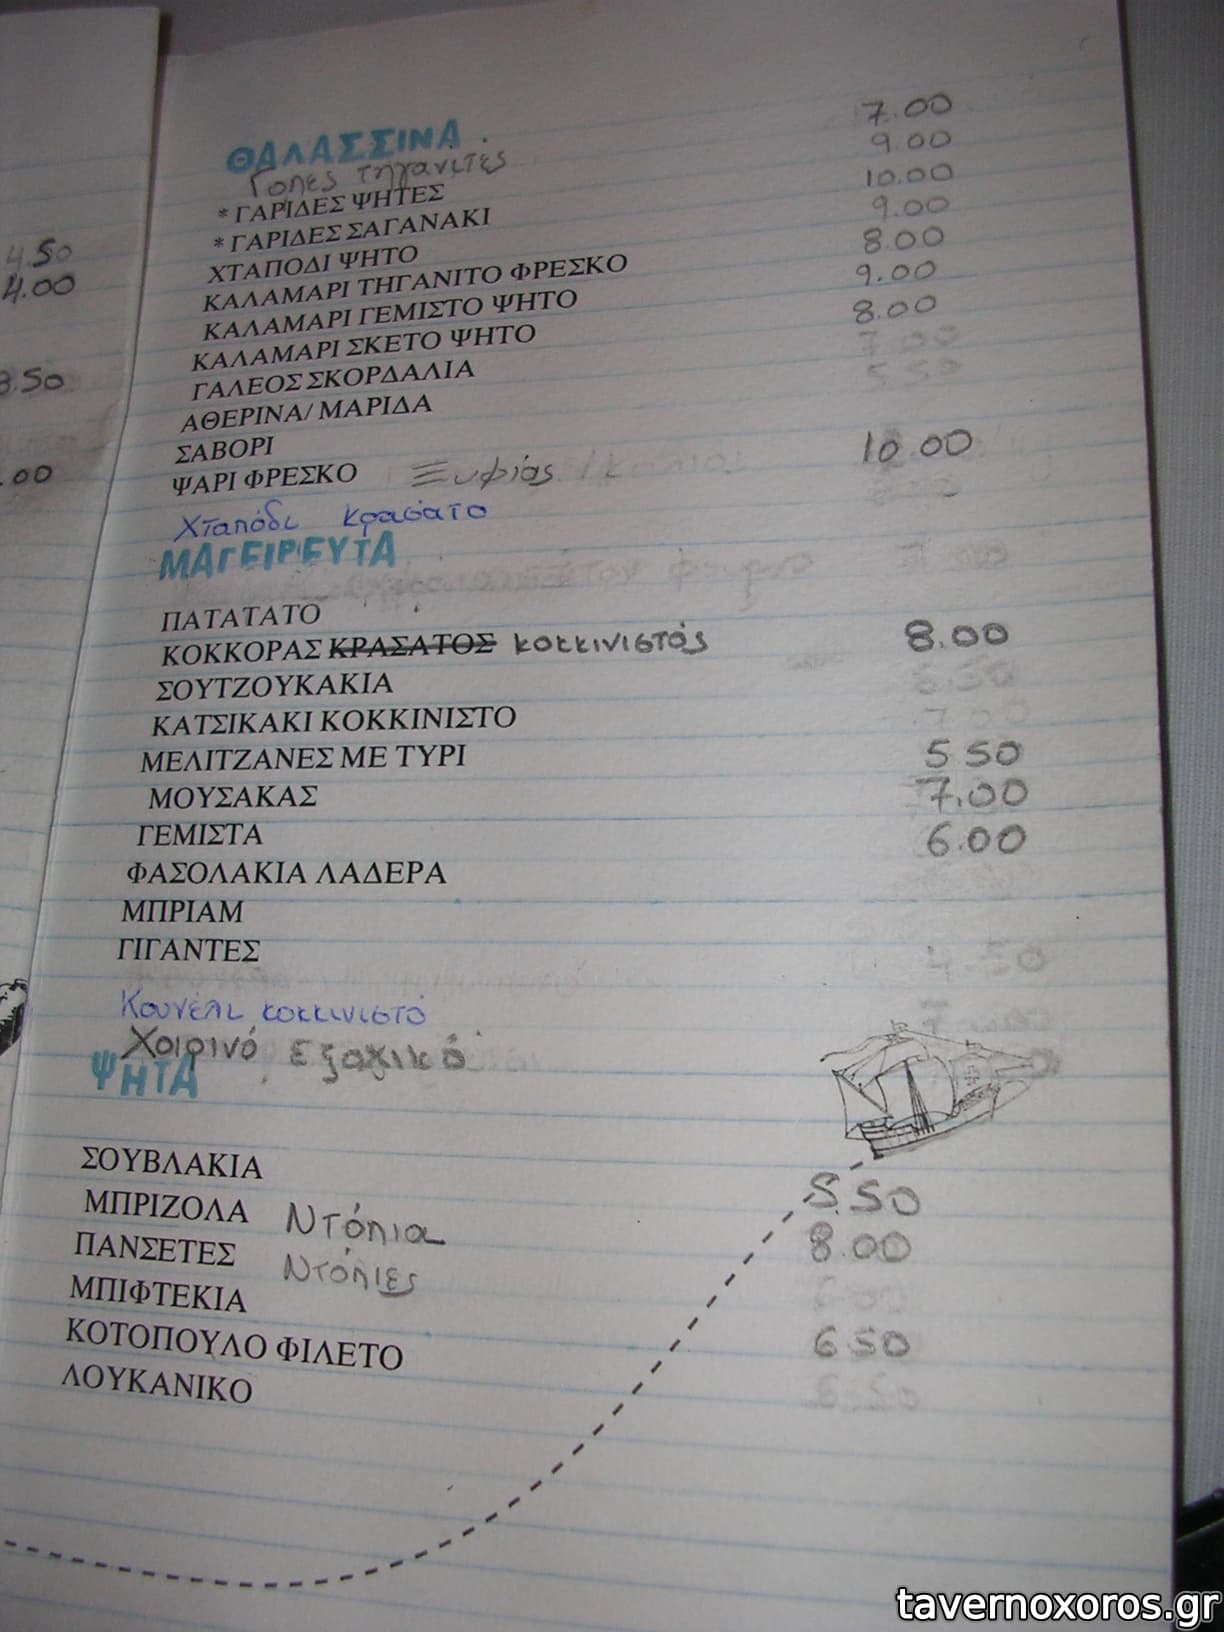 4.50
4.00
3.50
.00
ΘΑΛΑΣΣΙΝΑ
Γοπες τηγανιτές 7.00
* ΓΑΡΙΔΕΣ ΨΗΤΕΣ 9.00
* ΓΑΡΙΔΕΣ ΣΑΓΑΝΑΚΙ 10.00
ΧΤΑΠΟΔΙ ΨΗΤΟ 9.00
ΚΑΛΑΜΑΡΙ ΤΗΓΑΝΙΤΟ ΦΡΕΣΚΟ 8.00
ΚΑΛΑΜΑΡΙ ΓΕΜΙΣΤΟ ΨΗΤΟ 9.00
ΚΑΛΑΜΑΡΙ ΣΚΕΤΟ ΨΗΤΟ 8.00
ΓΑΛΕΟΣ ΣΚΟΡΔΑΛΙΑ 7.00
ΑΘΕΡΙΝΑ/ ΜΑΡΙΔΑ 5.50
ΣΑΒΟΡΙ
ΨΑΡΙ ΦΡΕΣΚΟ Ξυφιάς 10.00
Χταπόδι κρασάτο
ΜΑΓΕΙΡΕΥΤΑ
ΠΑΤΑΤΑΤΟ
ΚΟΚΚΟΡΑΣ ΚΡΑΣΑΤΟΣ κοκκινιστός 8.00
ΣΟΥΤΖΟΥΚΑΚΙΑ 6.50
ΚΑΤΣΙΚΑΚΙ ΚΟΚΚΙΝΙΣΤΟ 7.00
ΜΕΛΙΤΖΑΝΕΣ ΜΕ ΤΥΡΙ 5 50
ΜΟΥΣΑΚΑΣ 7.00
ΓΕΜΙΣΤΑ 6.00
ΦΑΣΟΛΑΚΙΑ ΛΑΔΕΡΑ
ΜΠΡΙΑΜ
ΓΙΓΑΝΤΕΣ 4.50
Κουνέλι κοκκινιστό 7.00
Χοιρινό εξοχικό
ΨΗΤΑ
ΣΟΥΒΛΑΚΙΑ 5.50
ΜΠΡΙΖΟΛΑ Ντόπια 8.00
ΠΑΝΣΕΤΕΣ Ντόπιες 6.00
ΜΠΙΦΤΕΚΙΑ 6 50
ΚΟΤΟΠΟΥΛΟ ΦΙΛΕΤΟ 6.50
ΛΟΥΚΑΝΙΚΟ
tavernoxoros.gr